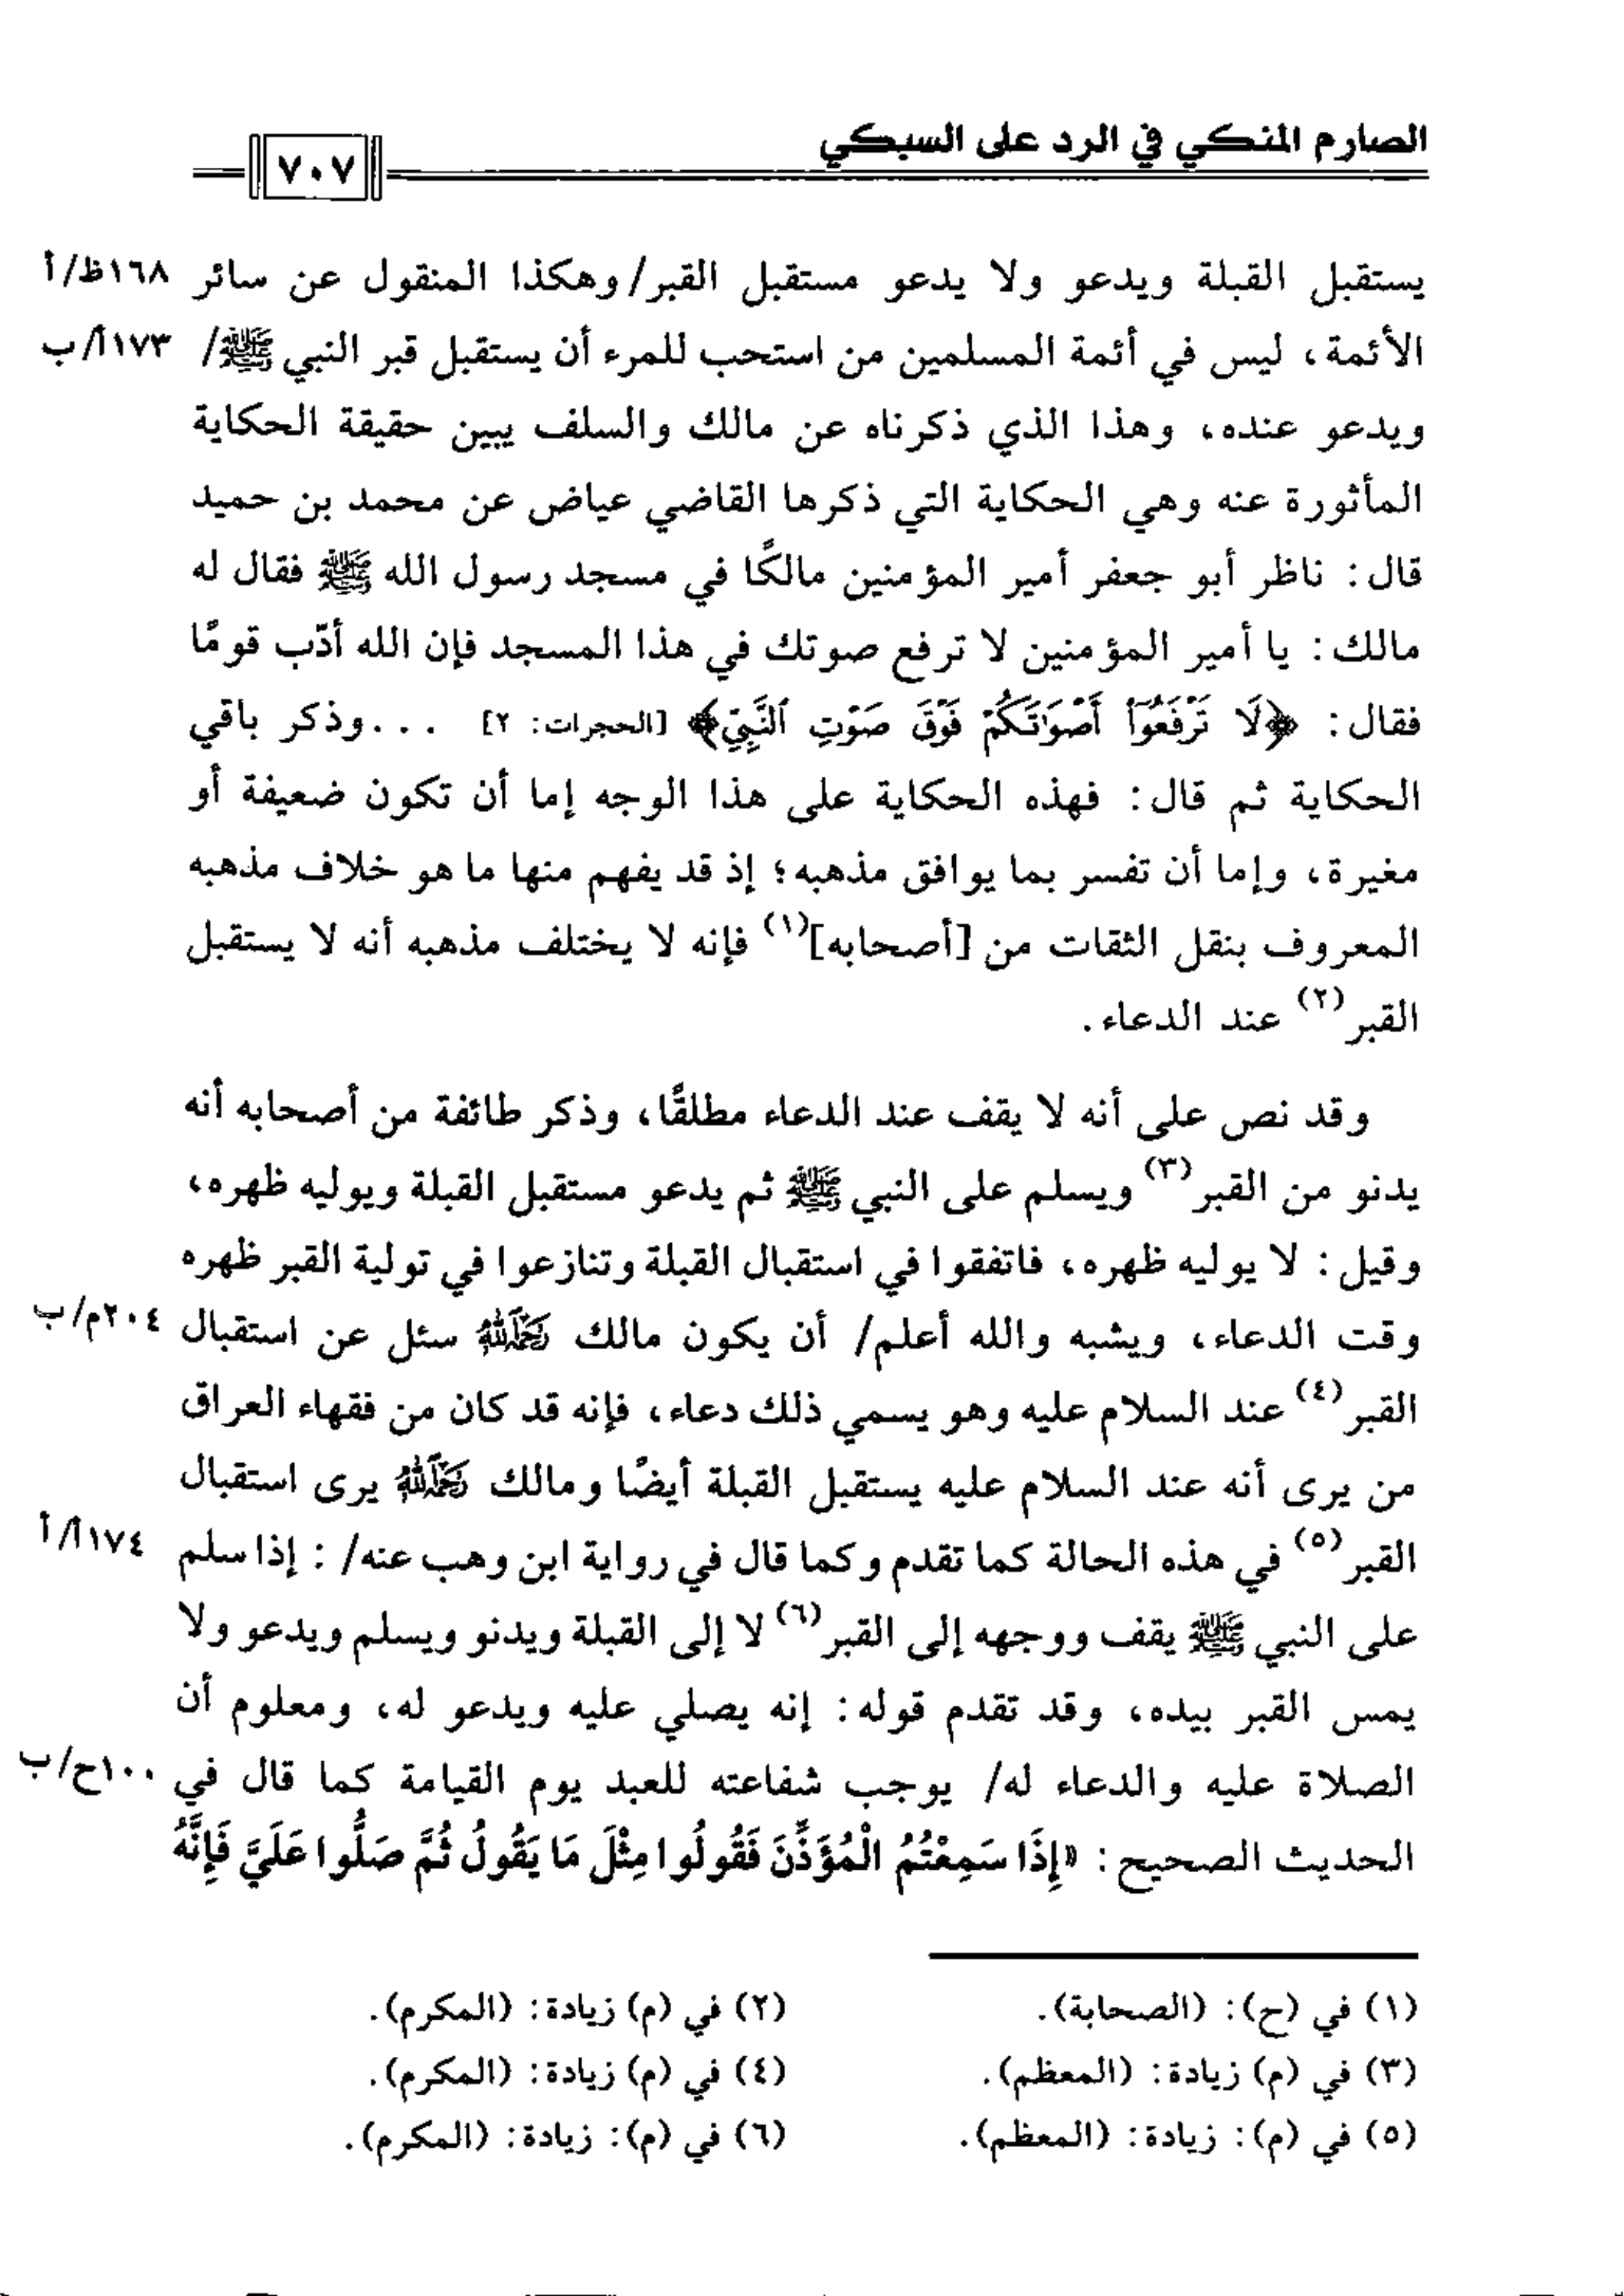 الصارم المنكي في الرد على السبكي
٧٠٧
يستقبل القبلة ويدعو ولا يدعو مستقبل القبر/وهكذا المنقول عن سائر ١٦٨ظ/أ
الأئمة، ليس في أئمة المسلمين من استحب للمرء أن يستقبل قبر النبي ﷺ/ ١٧٣أ/ب
ويدعو عنده، وهذا الذي ذكرناه عن مالك والسلف يبين حقيقة الحكاية
المأثورة عنه وهي الحكاية التي ذكرها القاضي عياض عن محمد بن حميد
قال: ناظر أبو جعفر أمير المؤمنين مالكًا في مسجد رسول الله ﷺ فقال له
مالك: يا أمير المؤمنين لا ترفع صوتك في هذا المسجد فإن الله أدّب قومًا
فقال: ﴿لَا تَرْفَعُوٓا۟ أَصْوَٰتَكُمْ فَوْقَ صَوْتِ ٱلنَّبِيِّ﴾ [الحجرات: ٢] ...وذكر باقي
الحكاية ثم قال: فهذه الحكاية على هذا الوجه إما أن تكون ضعيفة أو
مغيرة، وإما أن تفسر بما يوافق مذهبه؛ إذ قد يفهم منها ما هو خلاف مذهبه
المعروف بنقل الثقات من [أصحابه](١) فإنه لا يختلف مذهبه أنه لا يستقبل
القبر(٢) عند الدعاء.
وقد نص على أنه لا يقف عند الدعاء مطلقًا، وذكر طائفة من أصحابه أنه
يدنو من القبر(٣) ويسلم على النبي ﷺ ثم يدعو مستقبل القبلة ويوليه ظهره،
وقيل: لا يوليه ظهره، فاتفقوا في استقبال القبلة وتنازعوا في تولية القبر ظهره
وقت الدعاء، ويشبه والله أعلم/ أن يكون مالك رَحِمَهُ اللَّهُ سئل عن استقبال ٢٠٤م/ب
القبر(٤) عند السلام عليه وهو يسمي ذلك دعاء، فإنه قد كان من فقهاء العراق
من يرى أنه عند السلام عليه يستقبل القبلة أيضًا ومالك رَحِمَهُ اللَّهُ يرى استقبال
القبر(٥) في هذه الحالة كما تقدم وكما قال في رواية ابن وهب عنه/ : إذا سلم ١٧٤أ/أ
على النبي ﷺ يقف ووجهه إلى القبر(٦) لا إلى القبلة ويدنو ويسلم ويدعو ولا
يمس القبر بيده، وقد تقدم قوله: إنه يصلي عليه ويدعو له، ومعلوم أن
الصلاة عليه والدعاء له/ يوجب شفاعته للعبد يوم القيامة كما قال في ١٠٠ح/ب
الحديث الصحيح: «إِذَا سَمِعْتُمُ الْمُؤَذِّنَ فَقُولُوا مِثْلَ مَا يَقُولُ ثُمَّ صَلُّوا عَلَيَّ فَإِنَّهُ
(١) في (ح): (الصحابة). (٢) في (م) زيادة: (المكرم).
(٣) في (م) زيادة: (المعظم). (٤) في (م) زيادة: (المكرم).
(٥) في (م): زيادة: (المعظم). (٦) في (م): زيادة: (المكرم).